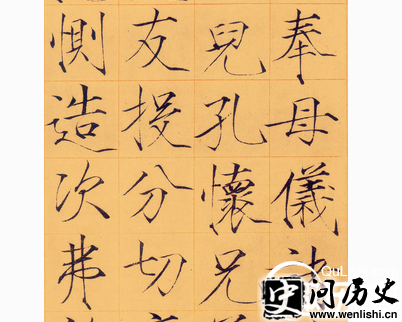 奉母儀
兒孔懷兄
友投分切
惻造次弗
问历史
www.wenlishi.cn